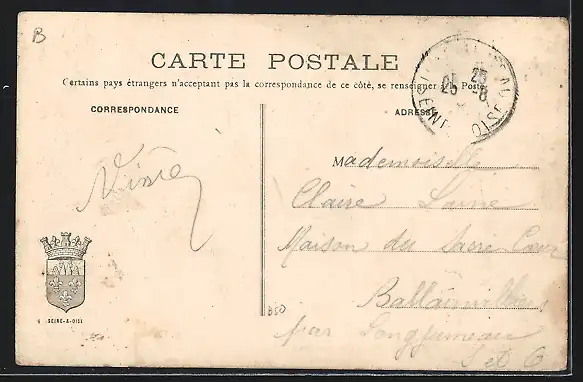 B
CARTE POSTALE
Certains pays étrangers n'acceptant pas la correspondance de ce côté, se renseigner à la Poste
CORRESPONDANCE
ADRESSE
Mademoiselle
Claire
Maison du Sacré Cœur
Ballainvilliers
par Longjumeau
S et O
SEINE-&-OISE
B50
25
8